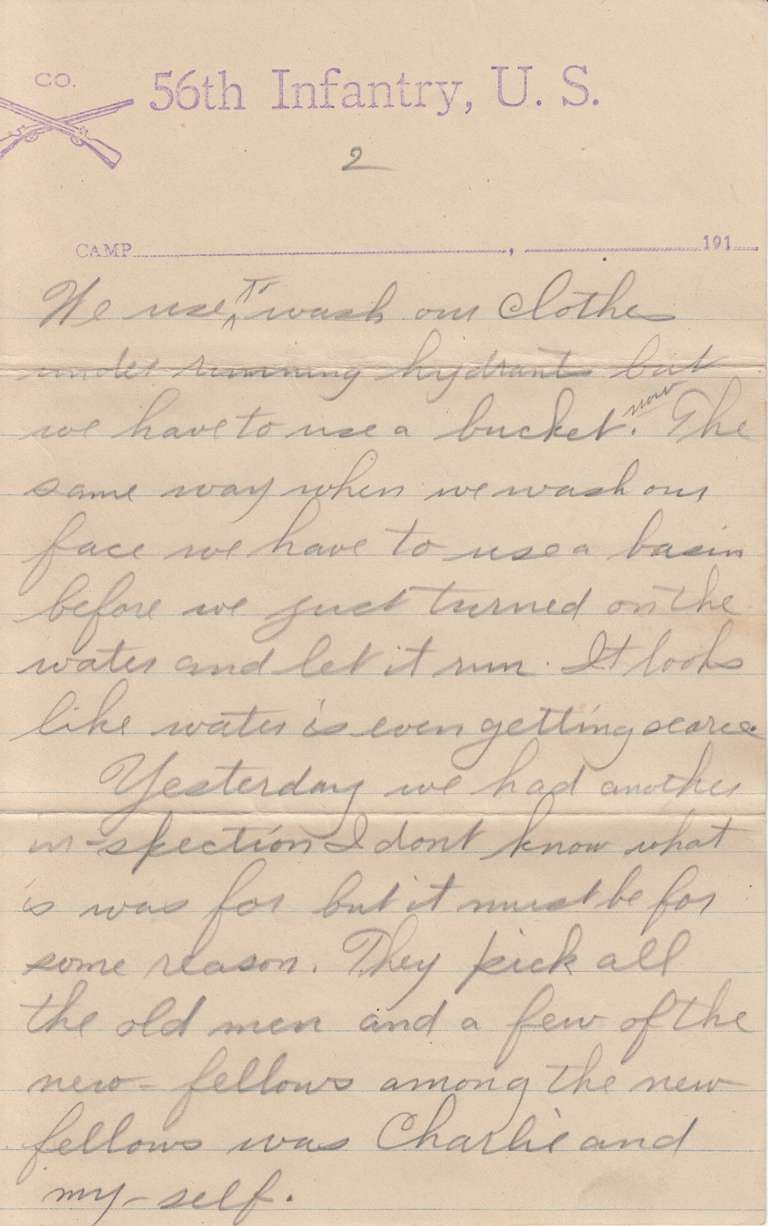 CO.
56th Infantry, U. S.
2
CAMP , 191
We use to wash our clothes
under running hydrants but
we have to use a bucket now. The
same way when we wash our
face we have to use a basin
before we just turned on the
water and let it run. It looks
like water is even getting scarce.
Yesterday we had another
in-spection I dont know what
is was for but it must be for
some reason. They pick all
the old men and a few of the
new- fellows among the new-
fellows was Charlie and
my-self.